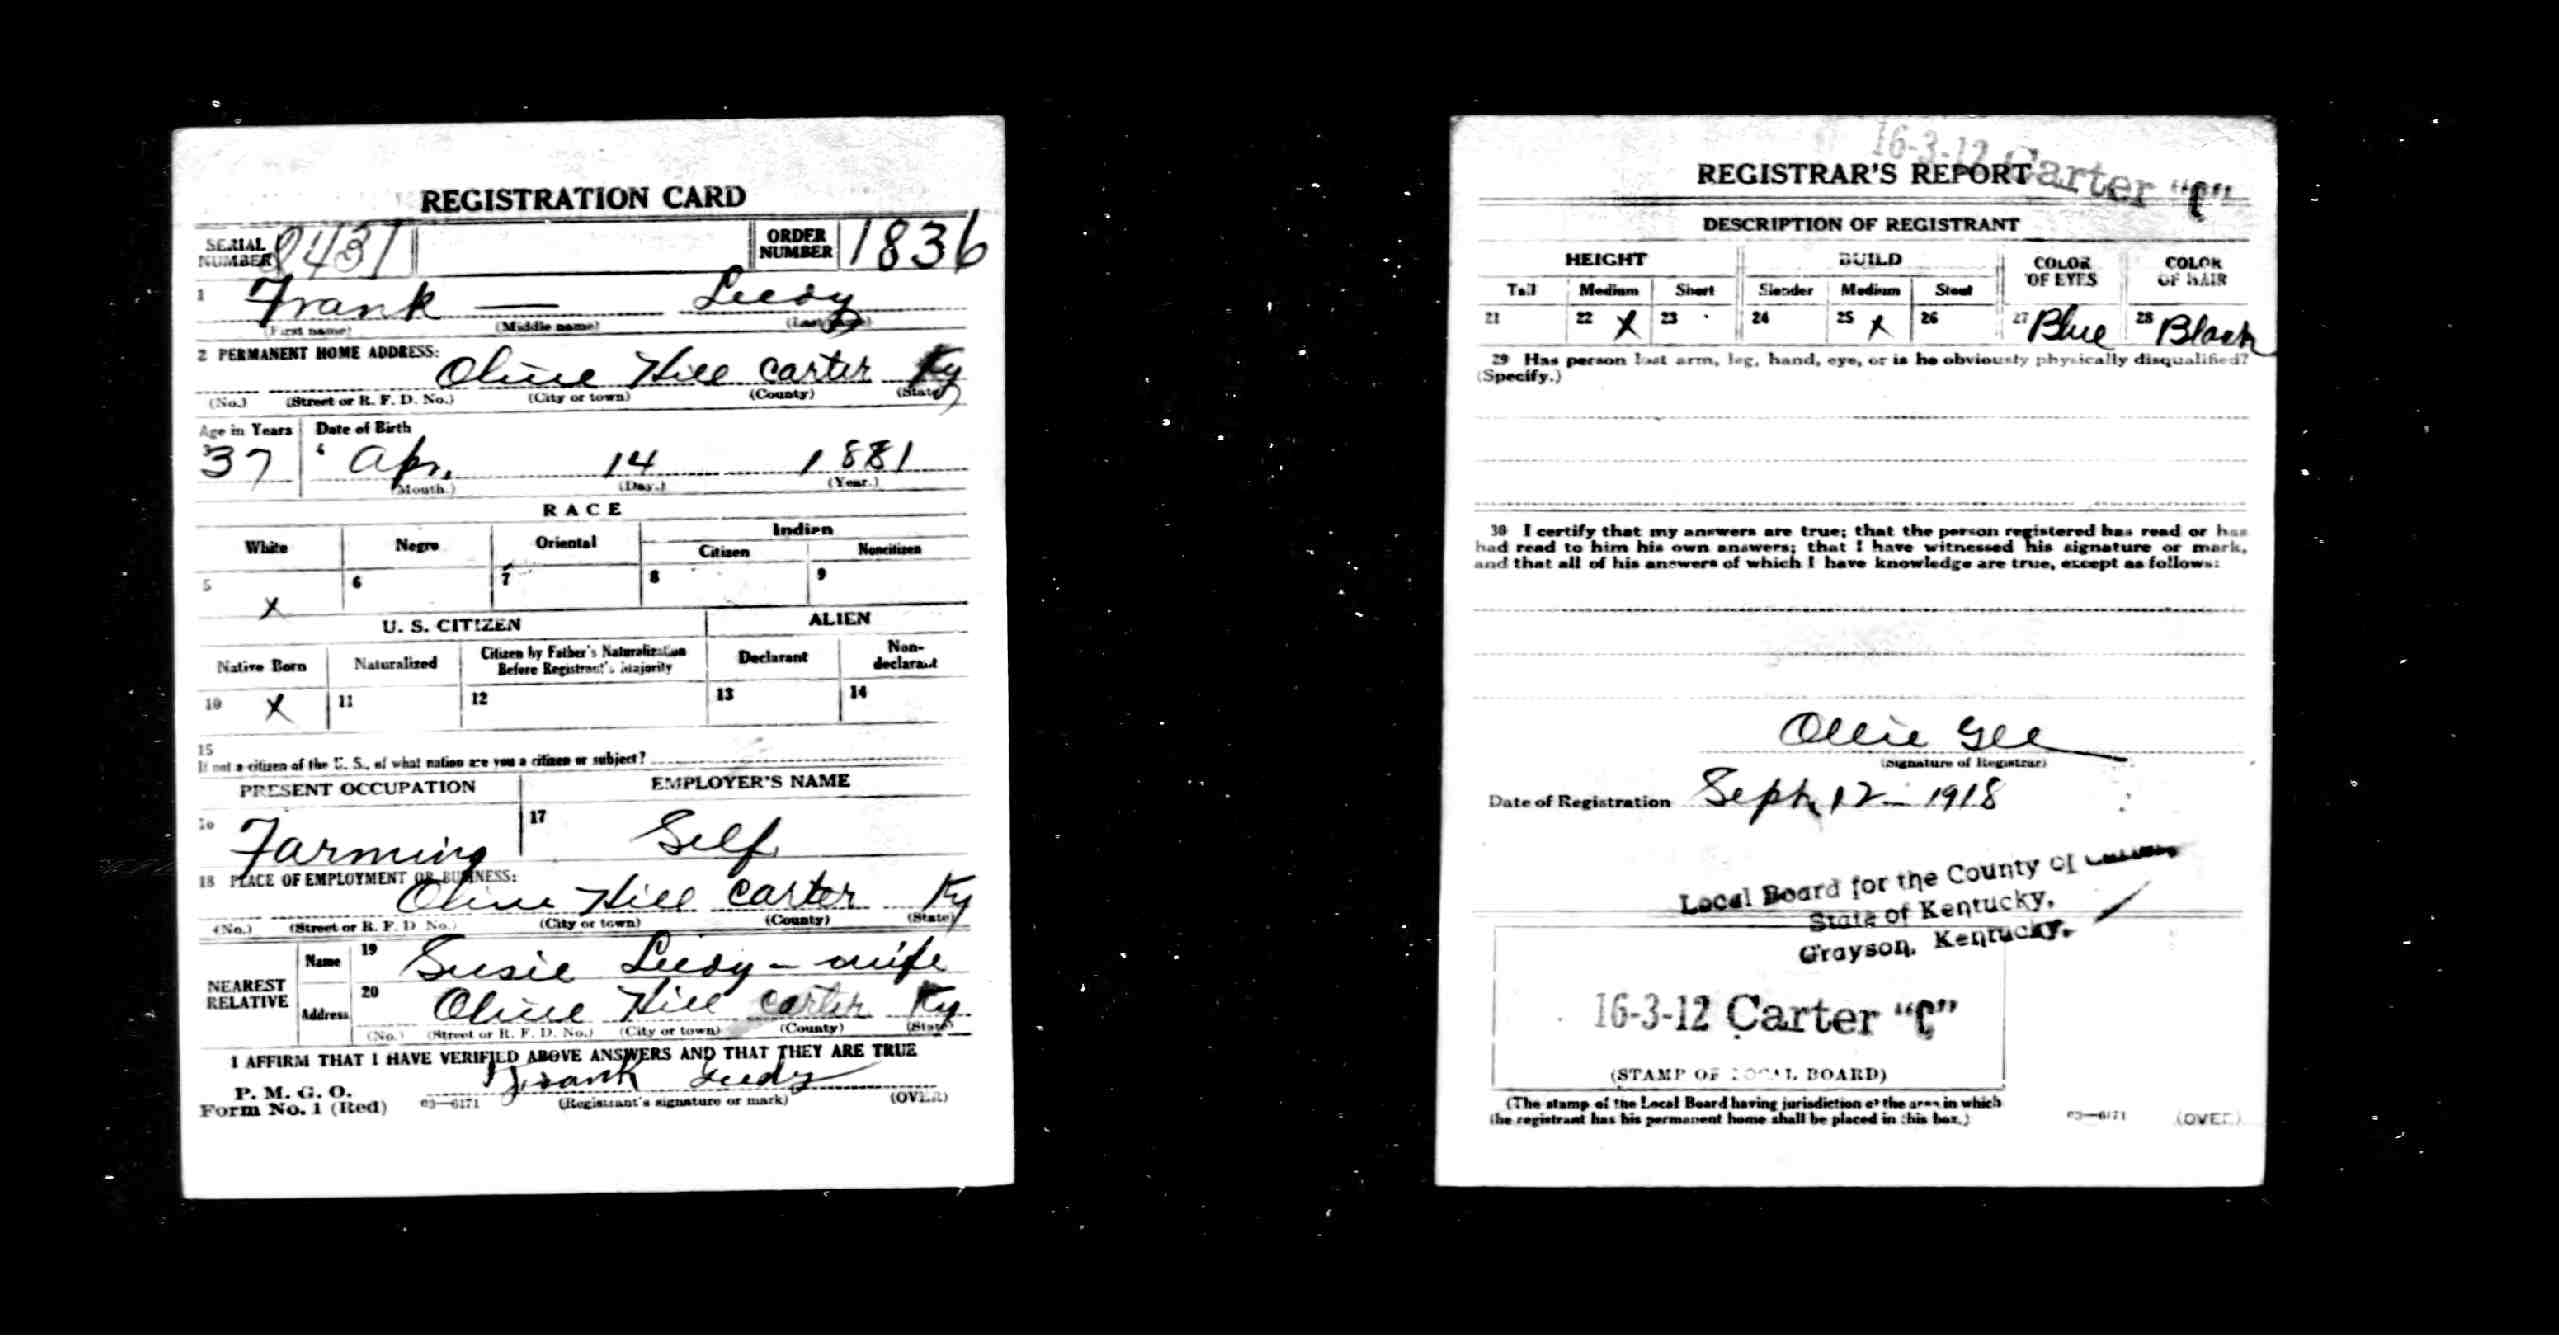 REGISTRATION CARD
SERIAL NUMBER 2431 ORDER NUMBER 1836
1 Frank — Leedy
(First name) (Middle name) (Last name)
2 PERMANENT HOME ADDRESS:
Olive Hill Carter Ky
(No.) (Street or R. F. D. No.) (City or town) (County) (State)
Age in Years Date of Birth
3 37 4 Apr. 14 1881
(Month.) (Day.) (Year.)
RACE
White Negro Oriental Indian
Citizen Noncitizen
5 X 6 7 8 9
U. S. CITIZEN ALIEN
Native Born Naturalized Citizen by Father's Naturalization Before Registrant's Majority Declarant Non-declarant
10 X 11 12 13 14
15
If not a citizen of the U. S., of what nation are you a citizen or subject?
PRESENT OCCUPATION EMPLOYER'S NAME
16 Farming 17 Self
18 PLACE OF EMPLOYMENT OR BUSINESS:
Olive Hill Carter Ky
(No.) (Street or R. F. D. No.) (City or town) (County) (State)
NEAREST RELATIVE
Name 19 Susie Leedy - wife
Address 20 Olive Hill Carter Ky
(No.) (Street or R. F. D. No.) (City or town) (County) (State)
I AFFIRM THAT I HAVE VERIFIED ABOVE ANSWERS AND THAT THEY ARE TRUE
P. M. G. O.
Form No. 1 (Red) 03—6171 Frank Leedy
(Registrant's signature or mark) (OVER)
16-3-12 Carter "C"
REGISTRAR'S REPORT
DESCRIPTION OF REGISTRANT
HEIGHT BUILD COLOR OF EYES COLOR OF HAIR
Tall Medium Short Slender Medium Stout
21 22 X 23 24 25 X 26 27 Blue 28 Black
29 Has person lost arm, leg, hand, eye, or is he obviously physically disqualified?
(Specify.)
30 I certify that my answers are true; that the person registered has read or has
had read to him his own answers; that I have witnessed his signature or mark,
and that all of his answers of which I have knowledge are true, except as follows:
Ollie Gee
(Signature of Registrar)
Date of Registration Sept 12 - 1918
Local Board for the County of
State of Kentucky,
Grayson, Kentucky.
16-3-12 Carter "C"
(STAMP OF LOCAL BOARD)
(The stamp of the Local Board having jurisdiction of the area in which
the registrant has his permanent home shall be placed in this box.)
03—6171 (OVER)